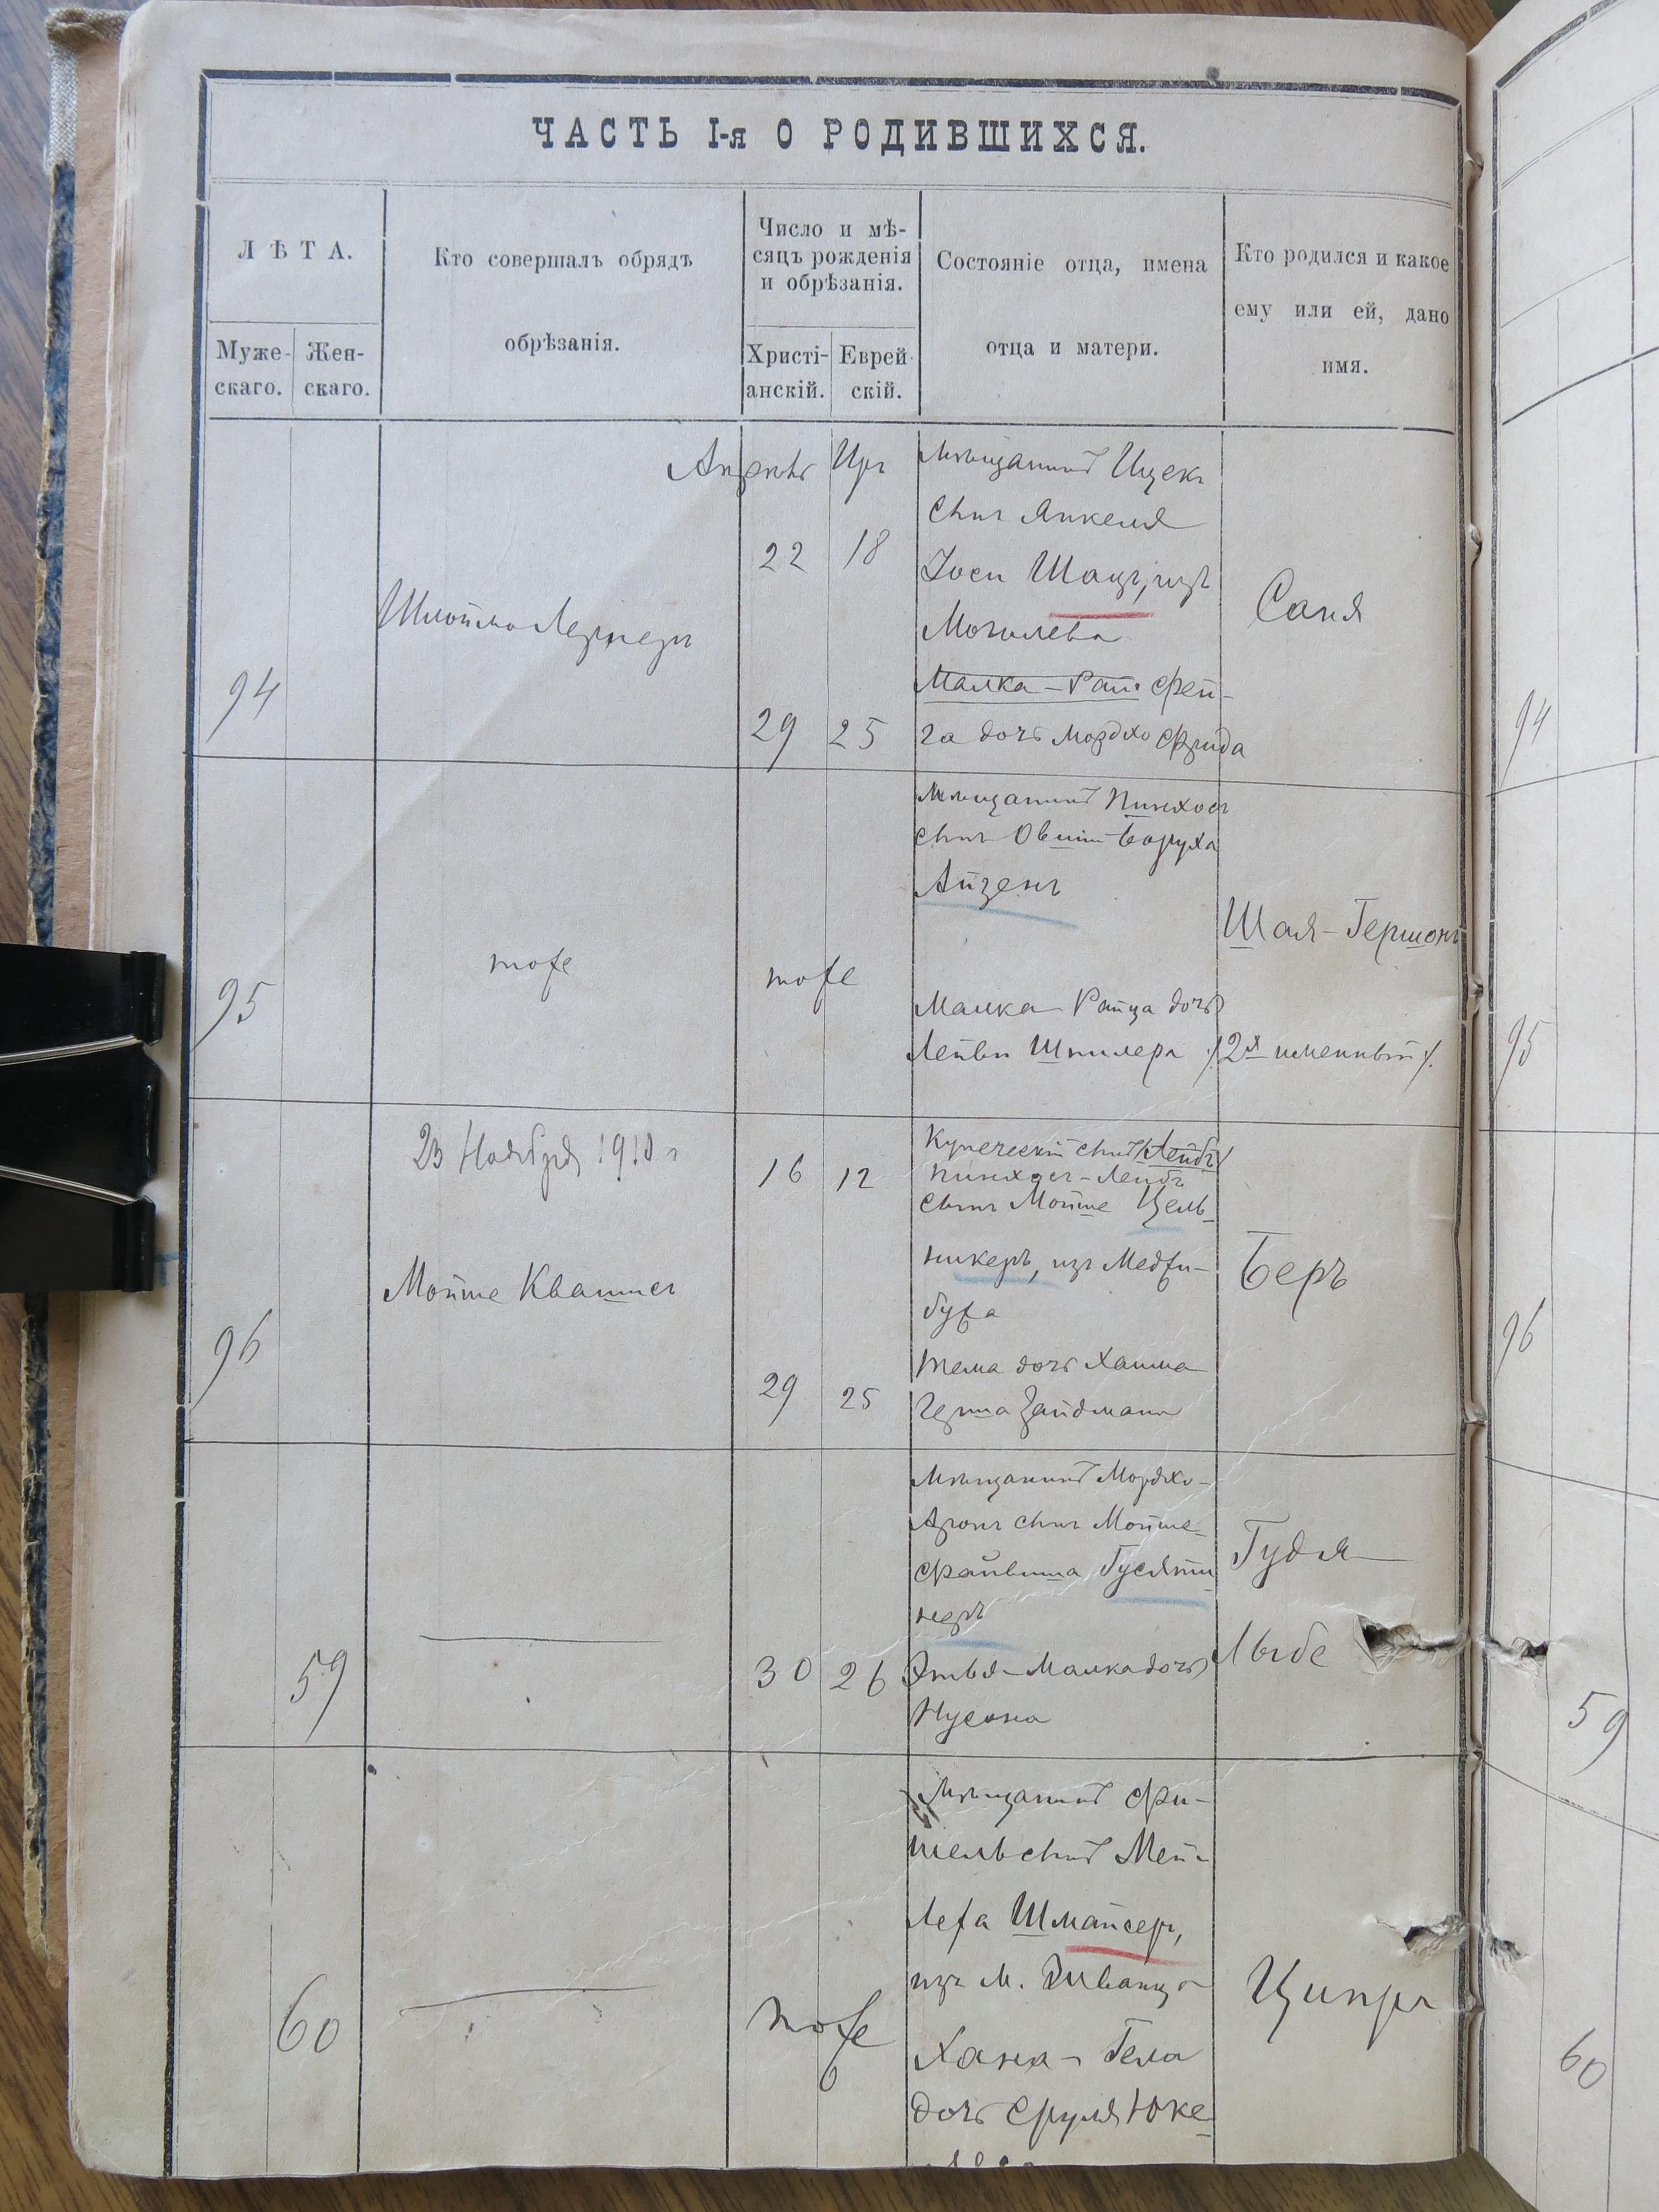 ЧАСТЬ I-я О РОДИВШИХСЯ.
ЛѢТА.
Муже-
скаго.
Жен-
скаго.
Кто совершалъ обрядъ
обрѣзанія.
Число и мѣ-
сяцъ рожденія
и обрѣзанія.
Христі-
анскій.
Еврей-
скій.
Состояніе отца, имена
отца и матери.
Кто родился и какое
ему или ей, дано
имя.
94
Шлойма
Апрѣль
22
29
Иръ
18
25
Мѣщанинъ Ицекъ
сынъ Янкеля
Іоси Шацъ, изъ
Могилева
Малка-Рай. Фей-
га дочь Мордхо Фрида
Саня
94
95
тоже
тоже
Мѣщанинъ Пинхосъ
сынъ Овшія-Боруха
Айзенъ
Малка-Райца дочь
Лейви Шпилера
Шая-Гершонъ
/2хъ именный/.
95
96
23 Ноября 1910 г
Мойше Квашнеъ
16
12
29
25
Купеческій сынъ /Лейбъ/
Пинхосъ-Лейбъ
сынъ Мойше Цель-
никеръ, изъ Меджи-
бужа
Тема дочь Хаима
Герша Зайдмана
Беръ
96
59
30
26
Мѣщанинъ Мордхо-
Аронъ сынъ Мойше-
Файвиша Гусяти-
неръ
Этья-Малка дочь
Нусона
Гудя
Лыбе
59
60
тоже
Мѣщанинъ Фи-
шель сынъ Мей-
леха Шмайсеръ,
изъ м. Жванца
Ханна-Гела
дочь Сруля Юке
Ципра
60